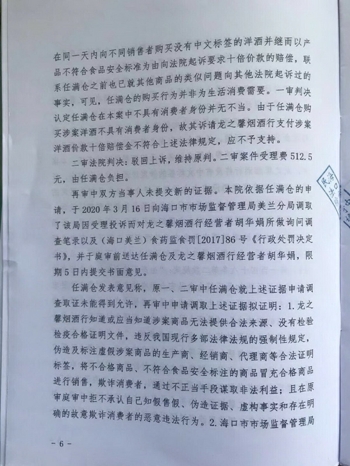 在同一天内向不同销售者购买没有中文标签的洋酒并继而以产
品不符合食品安全标准为由向法院起诉要求十倍价款的赔偿，联
系任满仓之前也已就其他商品的类似问题向其他法院起诉过的
事实，可见，任满仓的购买行为并非为生活消费需要。一审判决
认定任满仓在本案中不具有消费者身份并无不当。由于任满仓购
买涉案洋酒不具有消费者身份，故其诉请龙之馨烟酒行支付涉案
洋酒价款十倍赔偿金不符合上述法律规定，应不予支持。
二审法院判决：驳回上诉，维持原判。二审案件受理费 512.5
元，由任满仓负担。
再审中双方当事人未提交新的证据。本院依据任满仓的申
请，于 2020 年 3 月 16 日向海口市场监督管理局美兰分局调取
了该局因受理投诉而对龙之馨烟酒行经营者胡华娟所做询问调
查笔录以及《海口美兰》食药监食罚[2017]86 号《行政处罚决定
书》，并于庭审前送达任满仓及龙之馨烟酒行经营者胡华娟，限
期 5 日内提交书面意见。
任满仓发表意见称，原一、二审中任满仓就上述证据申请调
查取证未能得到允许，再审中申请调取上述证据拟证明：1.龙之
馨烟酒行知道或应当知道涉案商品无法提供合法来源、没有检验
检疫合格证明文件，违反我国现行多部法律法规的强制性规定，
伪造及标注虚假涉案商品的生产商、经销商、代理商等合法证明
标签，将不合格商品、不符合食品安全标注的商品冒充合格商品
进行销售，欺诈消费者，通过不正当手段谋取非法利益；且在原
审庭审中拒不承认自己知假售假、伪造证据、虚构事实和存在明
确的故意欺诈消费者的恶意违法行为。2.海口市市场监督管理局
- 6 -